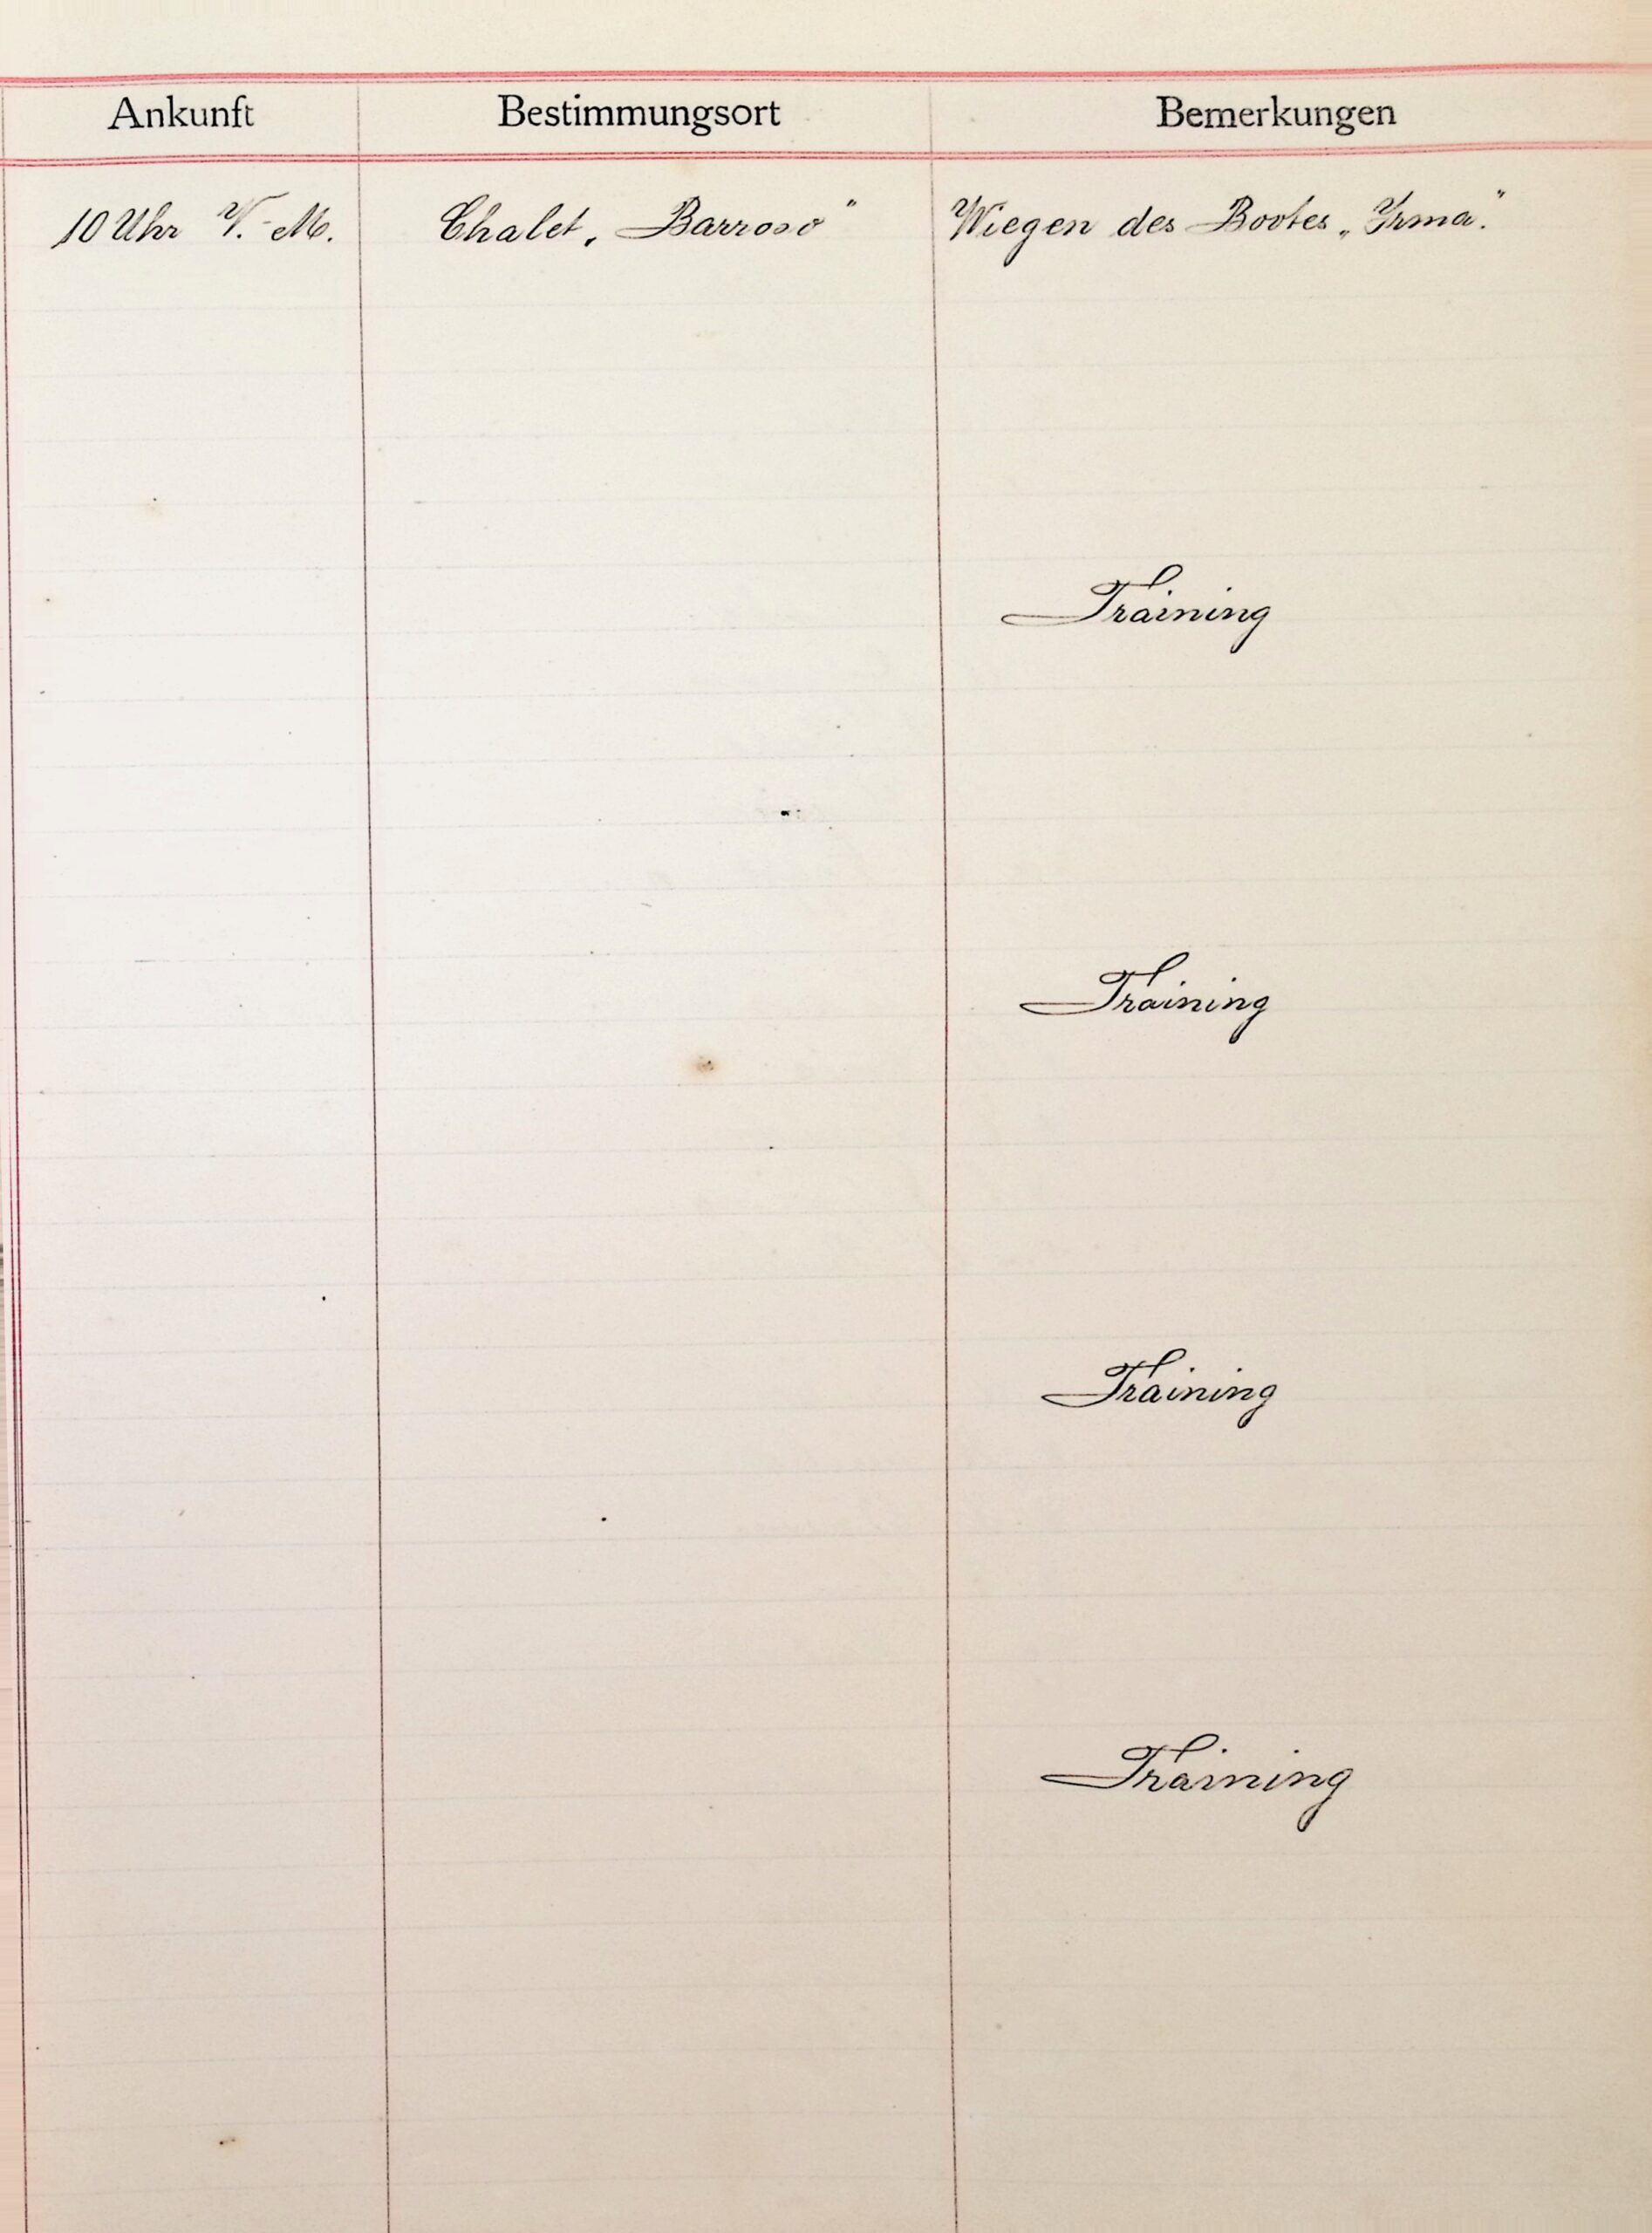 Ankunft Bestimmungsort Bemerkungen
10 Uhr V.-M. Chalet „Barroso“ Wiegen des Bootes „Irma“.
Training
Training
Training
Training